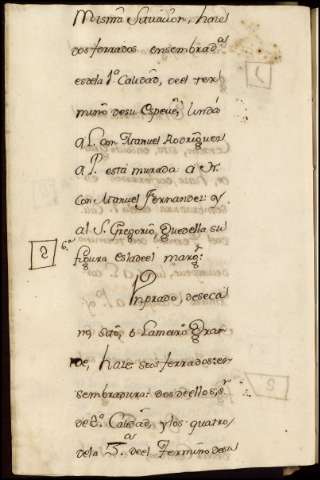 misma Situacion, haze
dos ferrados ensembradᵃ
es dela 1ᵃ Calidad, deel ter
mino desu Espeuᵉ, linda
a L. con Manuel Rodriguez
a P. está murada a N.
con Manuel Fernandez y
al S. Gregorio, Quedella su
figura es la deel margⁿ
Un prado, de seca
no, sito, ó Lameiro Gran
de, haze seis ferrados en
sembradura: dos de ellos, sⁿ
de 2ᵃ Calidad, y los quatro
de la 3ᵃ deel Termino desu